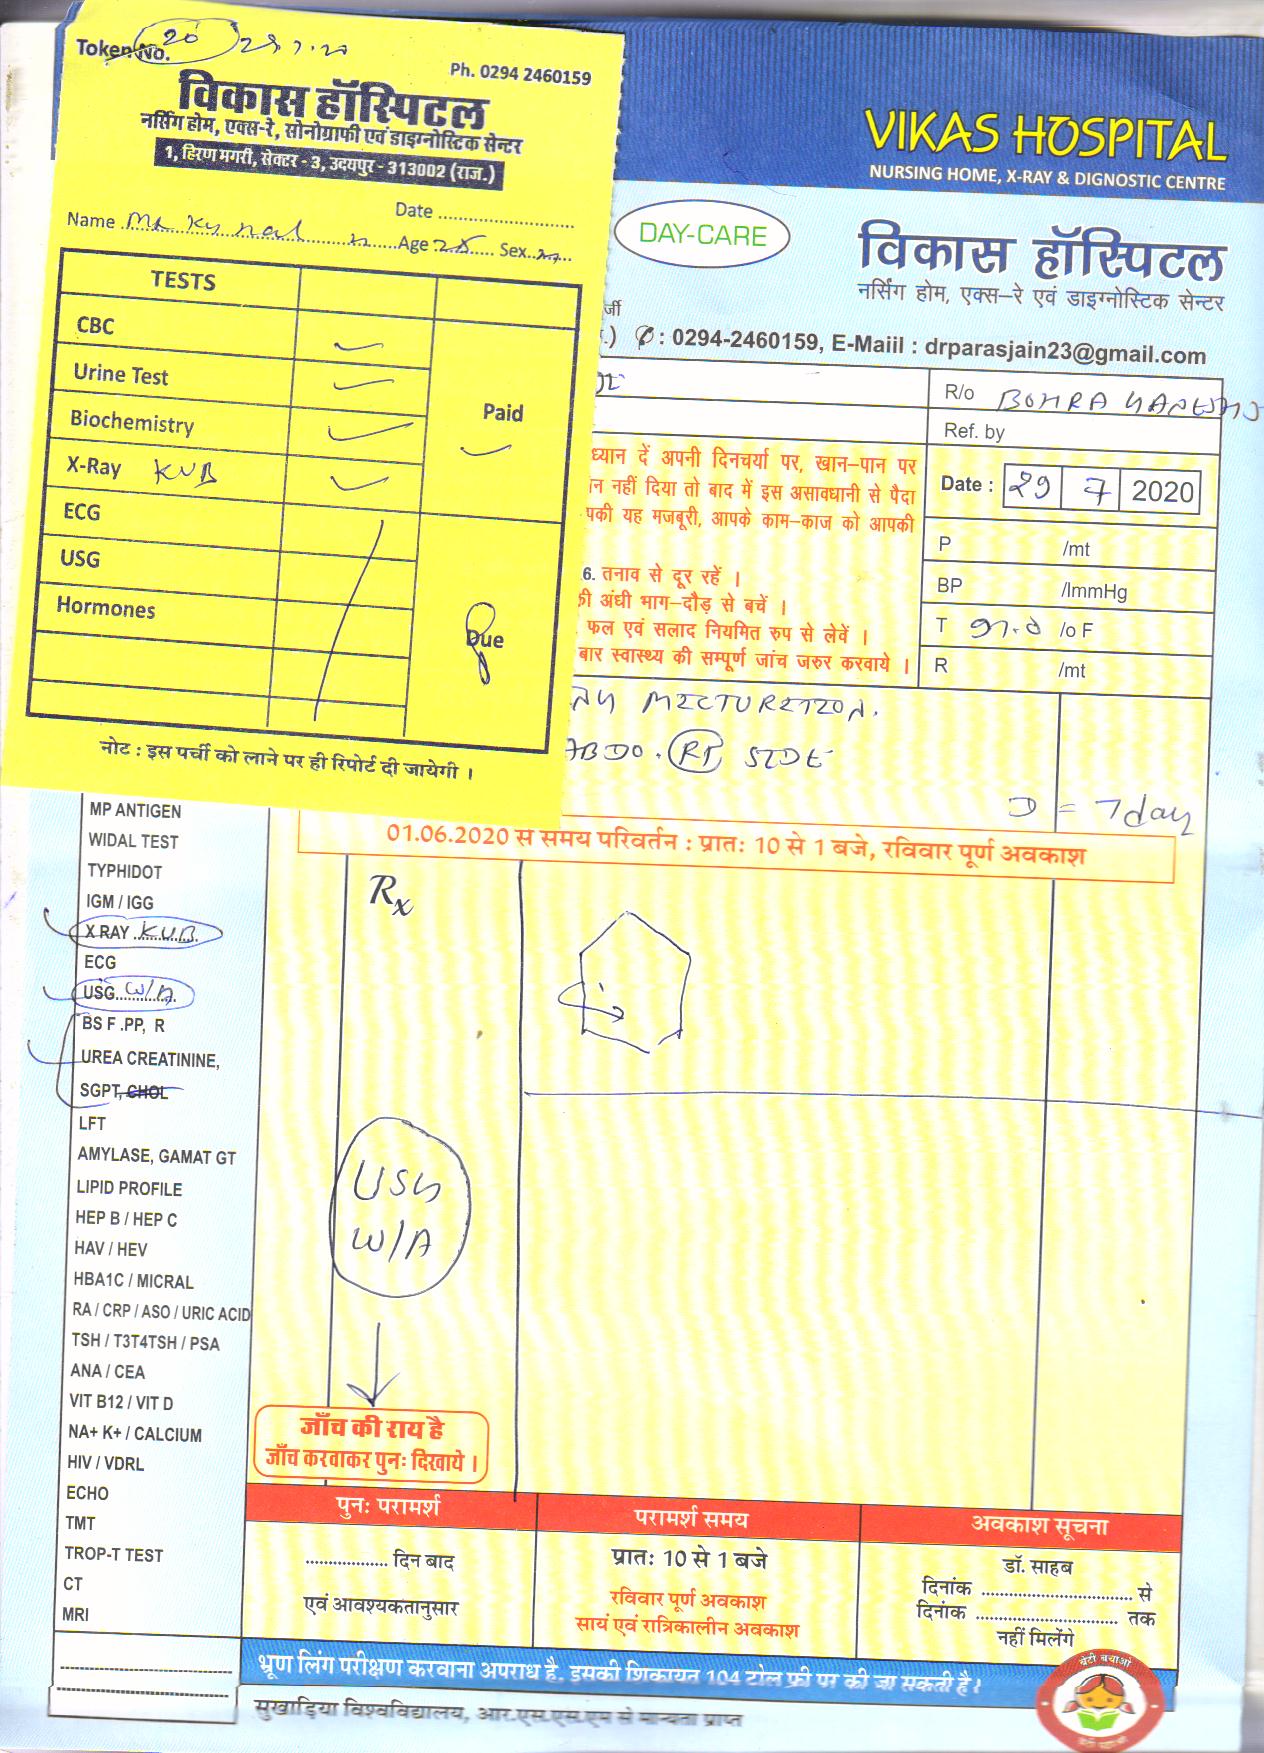 Token No. 20 29.7.20
Ph. 0294 2460159
विकास हॉस्पिटल
नर्सिंग होम, एक्स-रे, सोनोग्राफी एवं डाइग्नोस्टिक सेन्टर
1, हिरण मगरी, सेक्टर - 3, उदयपुर - 313002 (राज.)
Date
Name Age Sex
TESTS
CBC
Urine Test
Biochemistry
X-Ray KUB
ECG
USG
Hormones
Paid
Due
नोट : इस पर्ची को लाने पर ही रिपोर्ट दी जायेगी ।
VIKAS HOSPITAL
NURSING HOME, X-RAY & DIGNOSTIC CENTRE
DAY-CARE
विकास हॉस्पिटल
नर्सिंग होम, एक्स–रे एवं डाइग्नोस्टिक सेन्टर
र्जी
.) : 0294-2460159, E-Maiil : drparasjain23@gmail.com
R/o BOHRA GANESHJ
Ref. by
ध्यान दें अपनी दिनचर्या पर, खान–पान पर
न नहीं दिया तो बाद में इस असावधानी से पैदा
पकी यह मजबूरी, आपके काम–काज को आपकी
Date : 29 7 2020
P /mt
BP /ImmHg
T /o F
R /mt
6. तनाव से दूर रहें ।
की अंधी भाग–दौड़ से बचें ।
फल एवं सलाद नियमित रुप से लेवें ।
बार स्वास्थ्य की सम्पूर्ण जांच जरुर करवाये ।
MICTURETION.
ABDO. RT SIDE
D = 7 day
01.06.2020 स समय परिवर्तन : प्रातः 10 से 1 बजे, रविवार पूर्ण अवकाश
MP ANTIGEN
WIDAL TEST
TYPHIDOT
IGM / IGG
X RAY KUB
ECG
USG W/A
BS F .PP, R
UREA CREATININE,
SGPT, CHOL
LFT
AMYLASE, GAMAT GT
LIPID PROFILE
HEP B / HEP C
HAV / HEV
HBA1C / MICRAL
RA / CRP / ASO / URIC ACID
TSH / T3T4TSH / PSA
ANA / CEA
VIT B12 / VIT D
NA+ K+ / CALCIUM
HIV / VDRL
ECHO
TMT
TROP-T TEST
CT
MRI
Rx
USG
W/A
जाँच की राय है
जाँच करवाकर पुनः दिखाये ।
पुनः परामर्श
दिन बाद
एवं आवश्यकतानुसार
परामर्श समय
प्रातः 10 से 1 बजे
रविवार पूर्ण अवकाश
सायं एवं रात्रिकालीन अवकाश
अवकाश सूचना
डॉ. साहब
दिनांक से
दिनांक तक
नहीं मिलेंगे
भ्रूण लिंग परीक्षण करवाना अपराध है, इसकी शिकायत 104 टोल फ्री पर की जा सकती है।
सुखाड़िया विश्वविद्यालय, आर.एस.एस.एम से मान्यता प्राप्त
बेटी बचाओ